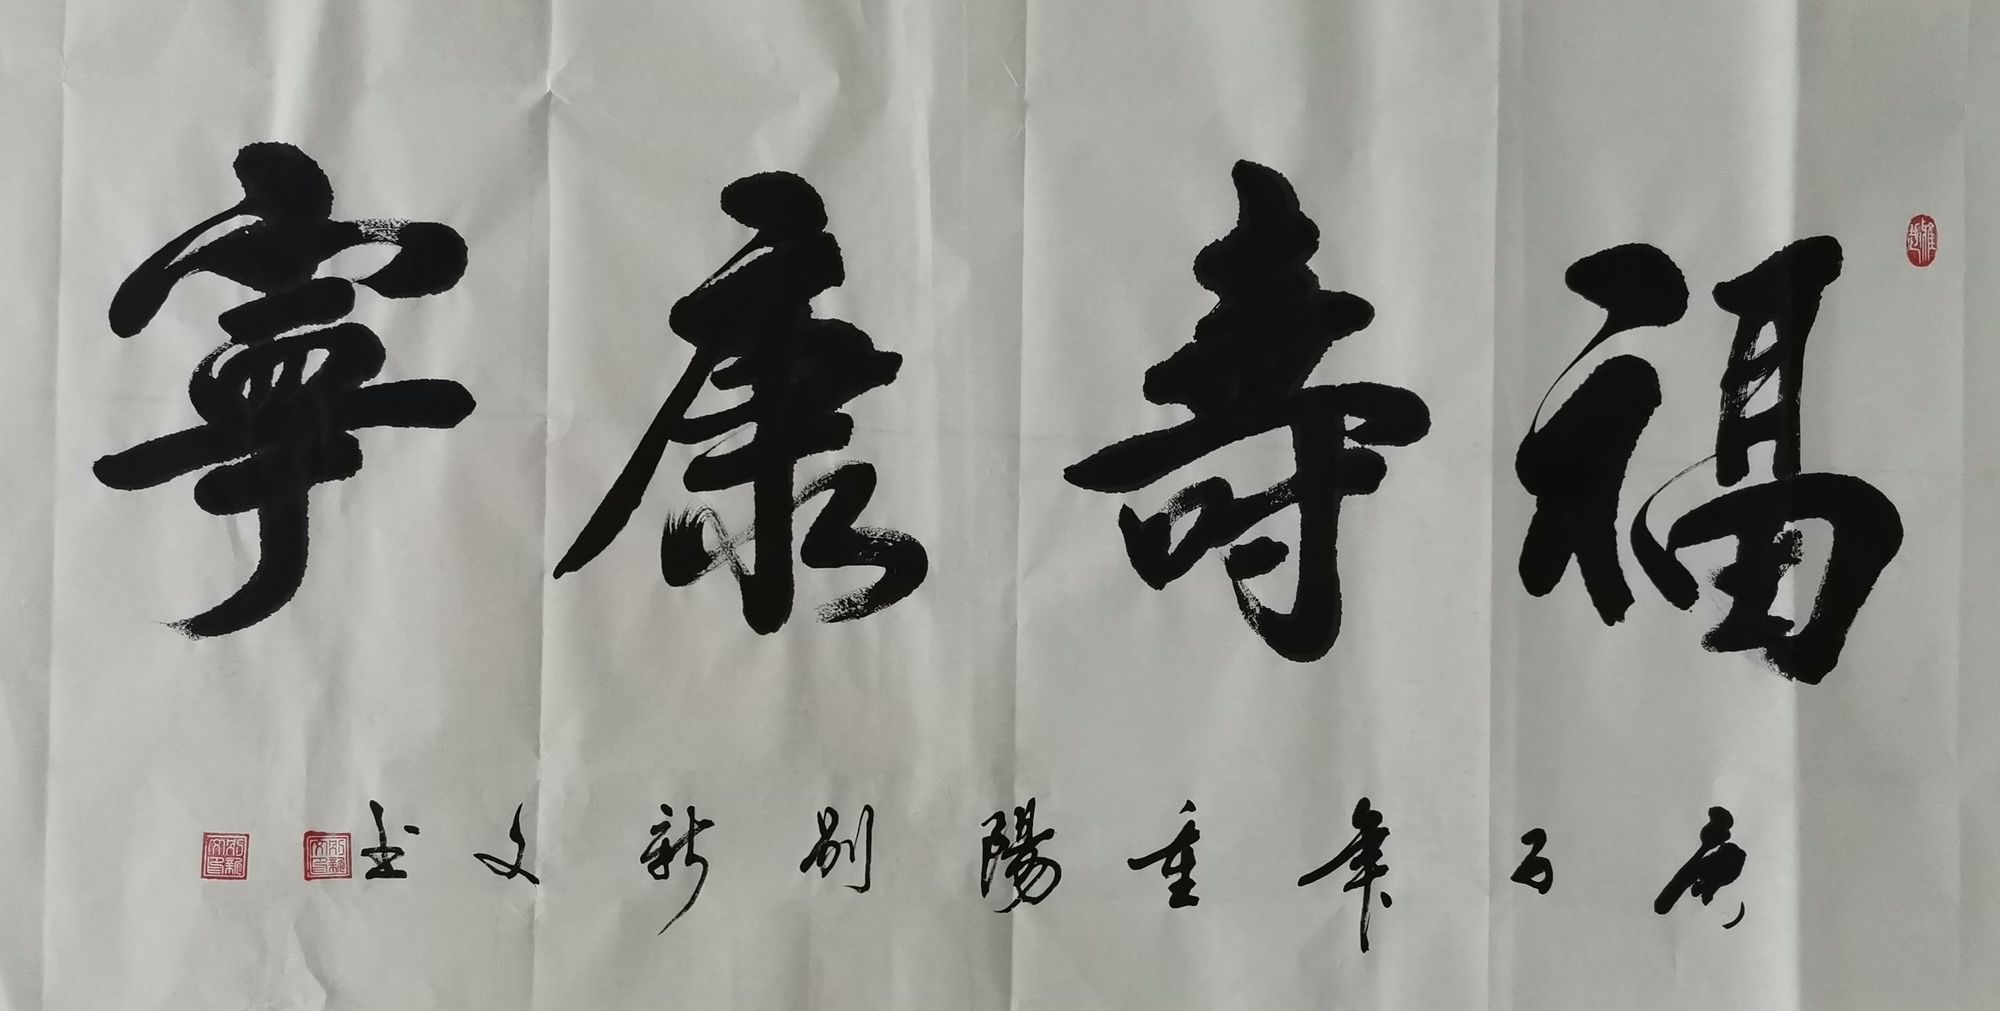 福壽康寧
庚子年重陽別新文书